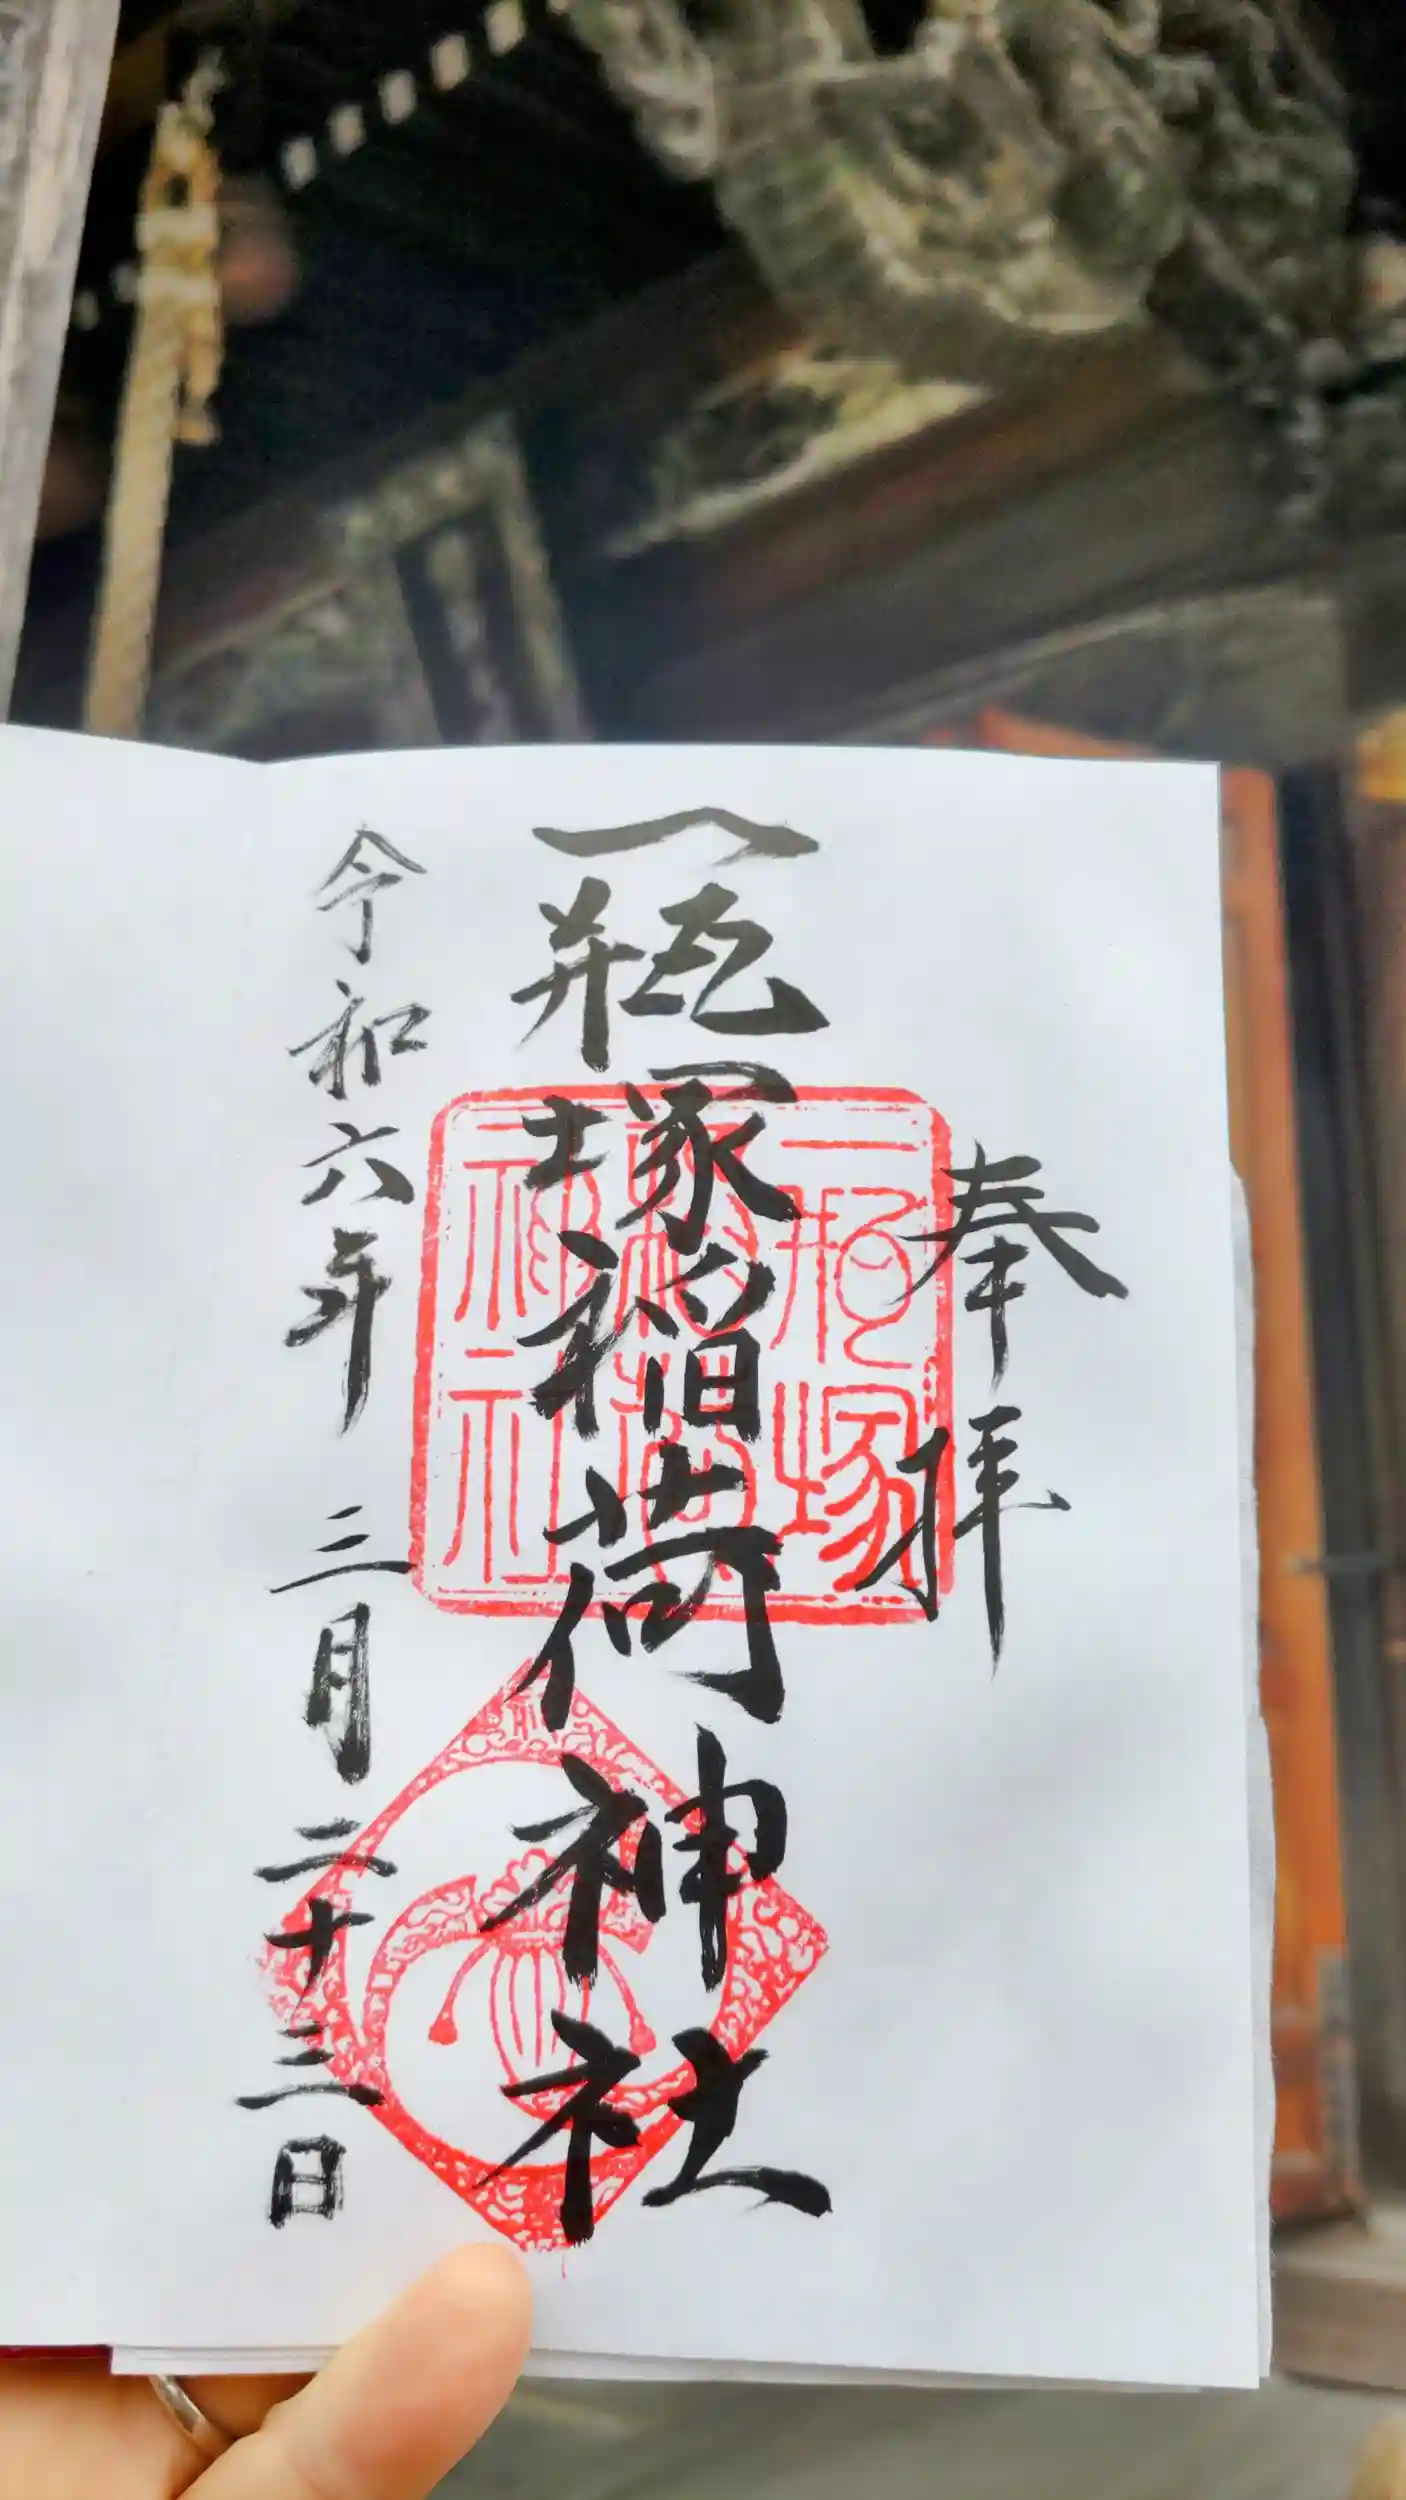 奉拝
一瓶塚稲荷神社
一瓶塚
稲荷
神社
令和六年三月二十三日